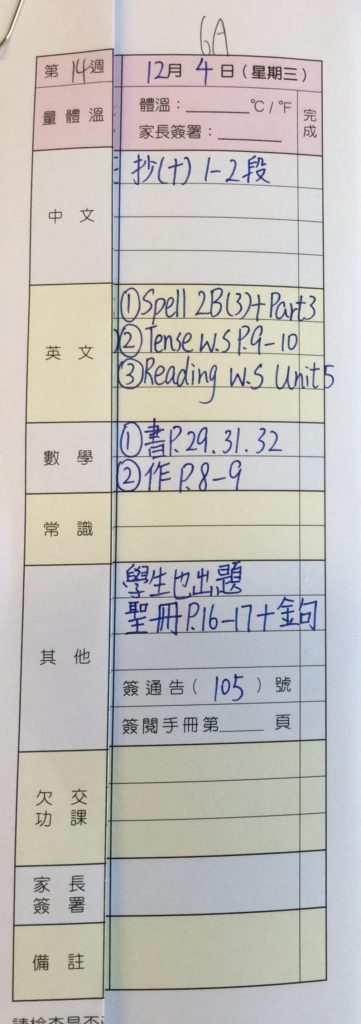 6A
第14週
12月4日(星期三)
量體溫
體溫：______℃/℉
家長簽署：______
完成
中文
抄(十) 1-2段
英文
①Spell 2B(3)+Part3
②Tense W.S P.9-10
③Reading W.S Unit5
數學
①書P.29.31.32
②作P.8-9
常識
其他
學生也出題
聖冊P.16-17+金句
簽通告(105)號
簽閱手冊第____頁
欠交
功課
家長
簽署
備註